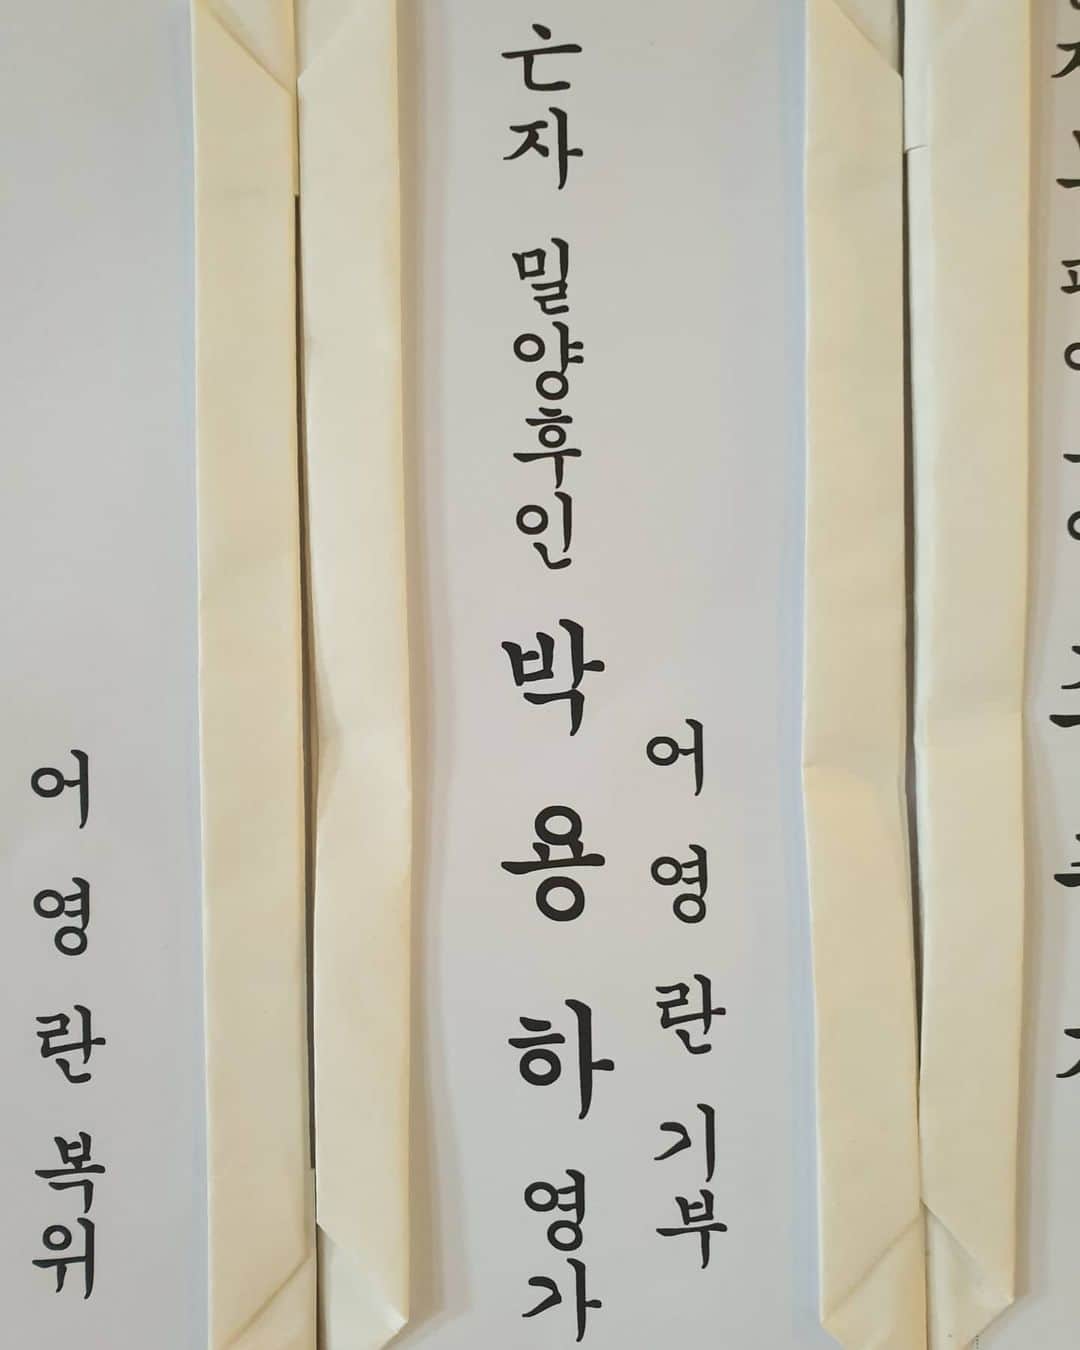 어 영 란 복위
亡자 밀양후인 박 용 하 영가
어 영 란 기부